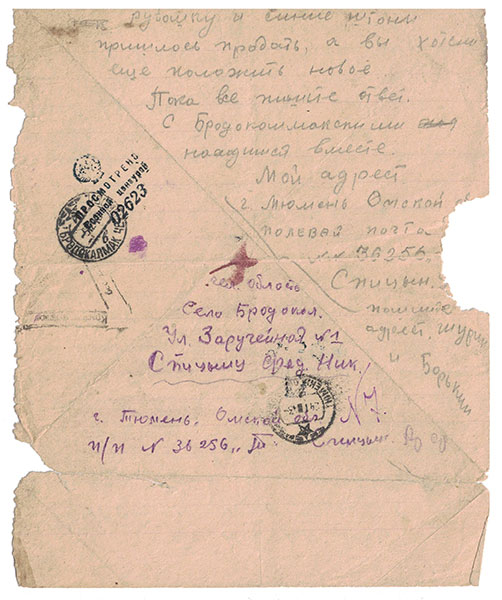 рубашку и синие штоны
пришлось продать, а вы хотели
еще положить новое
Пока все пишите ответ.
С Бродокалмакскими
находимся вместе.
Мой адрест
г. Тюмень Омской
полевая почта
36256
Спицын.
пошлите
адрест, Шурин
и Борькин
ПРОСМОТРЕНО
Военной цензурой
02623
БРОДКАЛМАК ЧЕЛ
область
Село Бродокол.
Ул. Заручейная №1
Спицыну Ник.
ТЮМЕНЬ
N 7.
г. Тюмень, Омской обл
п/п N 36256 „III Спицын